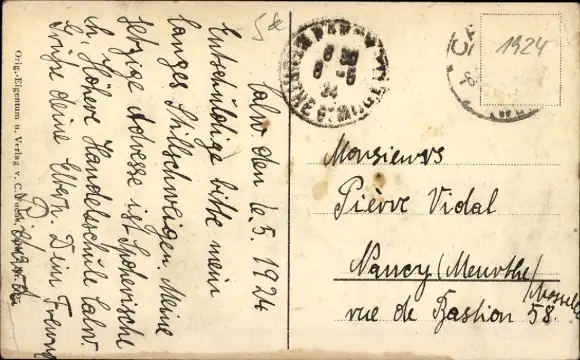 Calw den 6.5.1924
Entschuldige bitte mein
langes Stillschweigen. Meine
jetzige Adresse ist Spöhrerische
h. Höhere Handelsschule Calw.
Grüße deine Eltern. Dein Freund
Orig.-Eigentum u. Verlag v. C.
1924
Monsieurs
Pièrre Vidal
Nancy (Meurthe
Moselle
rue de Bastion 58.